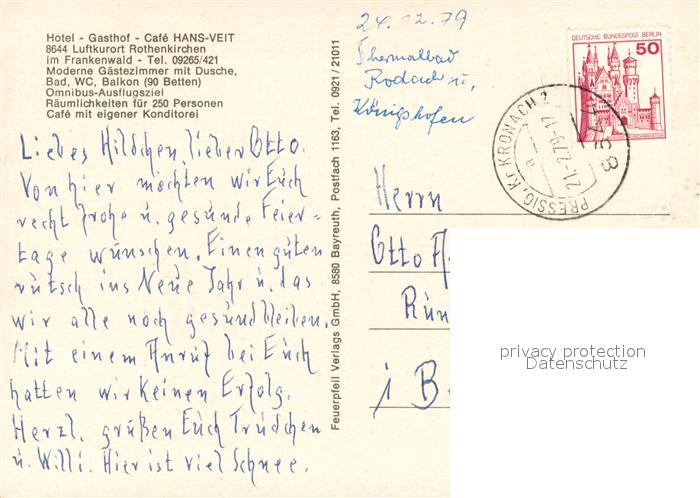 Hotel - Gasthof - Café HANS-VEIT
8644 Luftkurort Rothenkirchen
im Frankenwald - Tel. 09265/421
Moderne Gästezimmer mit Dusche,
Bad, WC, Balkon (90 Betten)
Omnibus-Ausflugsziel
Räumlichkeiten für 250 Personen
Café mit eigener Konditorei
Liebes Hildchen, lieber Otto.
Von hier möchten wir Euch
recht frohe u. gesunde Feier-
tage wünschen. Einen guten
rutsch ins Neue Jahr u. das
wir alle noch gesund bleiben.
Mit einem Anruf bei Euch
hatten wir keinen Erfolg.
Herzl. grüßen Euch Trudchen
u. Willi. Hier ist viel Schnee.
Feuerpfeil Verlags GmbH, 8580 Bayreuth, Postfach 1163, Tel. 0921 / 21011
24.12.79
Thermalbad
Rodach u.
Königshofen
DEUTSCHE BUNDESPOST BERLIN
50
PRESSIG, Kr KRONACH 2
a
Herrn
Otto
Rün
i B
privacy protection
Datenschutz